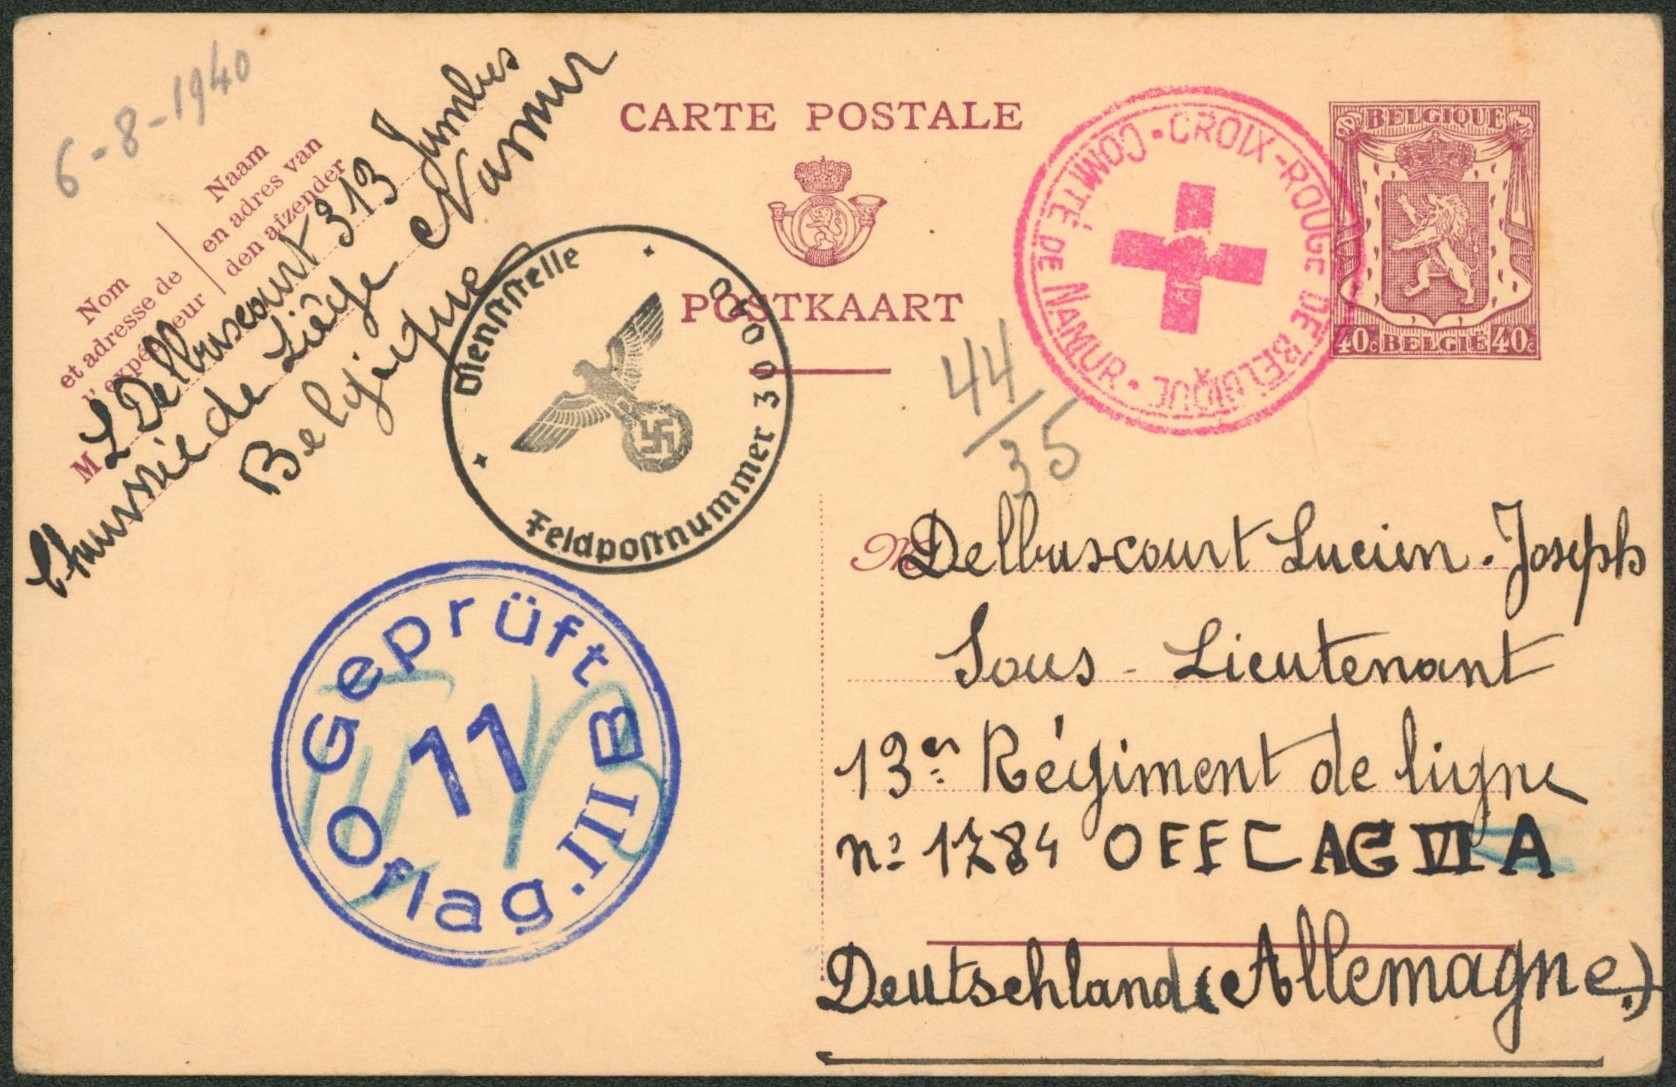 6-8-1940
CARTE POSTALE
POSTKAART
BELGIQUE
40c BELGIË 40c
CROIX-ROUGE DE BELGIQUE • COMITÉ DE NAMUR •
Naam
en adres van
den afzender
Nom
et adresse de
l'expéditeur
M L Delbuscourt 313 Jambes
Chaussée de Liège Namur
Belgique
Dienststelle
Feldpostnummer 3
44/35
Geprüft
11
Oflag. III B
M Delbuscourt Lucien. Joseph
Sous - Lieutenant
13er Régiment de ligne
n° 1784 OFFLAG VI A
Deutschland (Allemagne.)